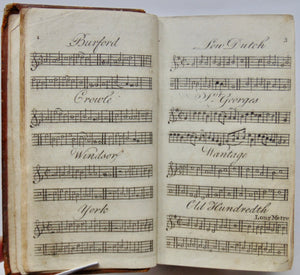 Burford
Crowle
Windsor
York
3
Low Dutch
St. Georges
Wantage
Old Hundredth
Long Metre